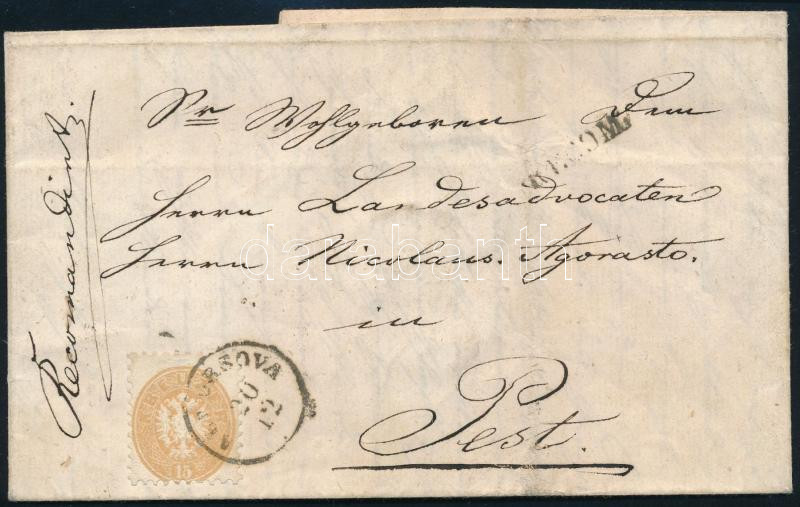 Sr Wohlgeboren Dem
RECOM.
Herrn Landesadvocaten
Herrn Nicolaus. Agorasto.
in
Pest.
Recomandirt.
ALT ORSOVA
20
12
15
darabanth